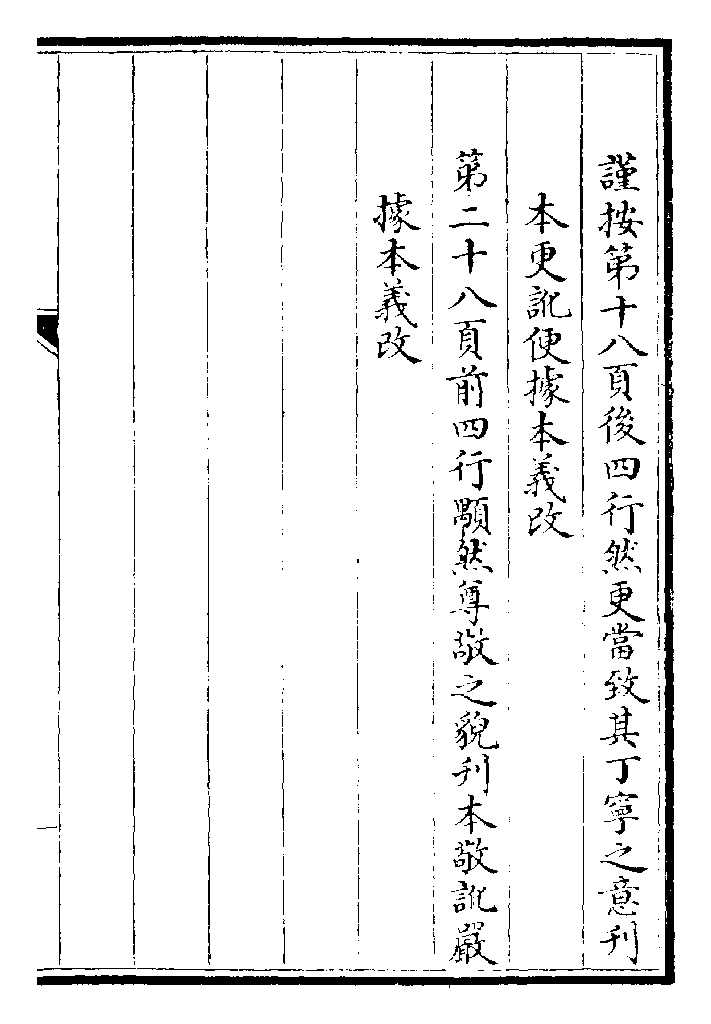 謹按第十八頁後四行然更當致其丁寧之意刋
本更訛便據本義改
第二十八頁前四行顒然尊敬之貌刋本敬訛嚴
據本義改